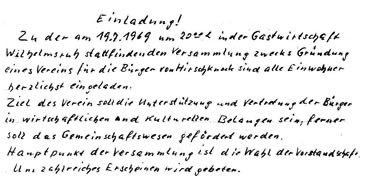 Einladung!
Zu der am 19.7.1969 um 20 Uhr in der Gastwirtschaft
Wilhelmsruh stattfindenden Versammlung zwecks Gründung
eines Vereins für die Bürger von Hirschknock sind alle Einwohner
herzlichst eingeladen.
Ziel des Verein soll die Unterstützung und Vertretung der Bürger
in wirtschaftlichen und Kulturellen Belangen sein, ferner
soll das Gemeinschaftswesen gefördert werden.
Hauptpunkt der Versammlung ist die Wahl der Vorstandschaft.
Um zahlreiches Erscheinen wird gebeten.